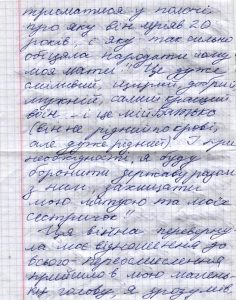 триматися у пологі
про яку він мріяв 20
років, і яку так сильно
обіцяла народити йому
моя мати". "Це дуже
сміливий, щирий, добрий
мужній, самий кращий
воїн і це мій батько
(він не рідний по крові,
але дуже рідний). І при
необхідності, я буду
боронити державу разом
з ним, захищати
мою матусю та моїх
сестричок".
Ця війна переверну
ла моє відношення до
всього. Переосмислення
прийшло в мою малень
ку голову, я зрозумів